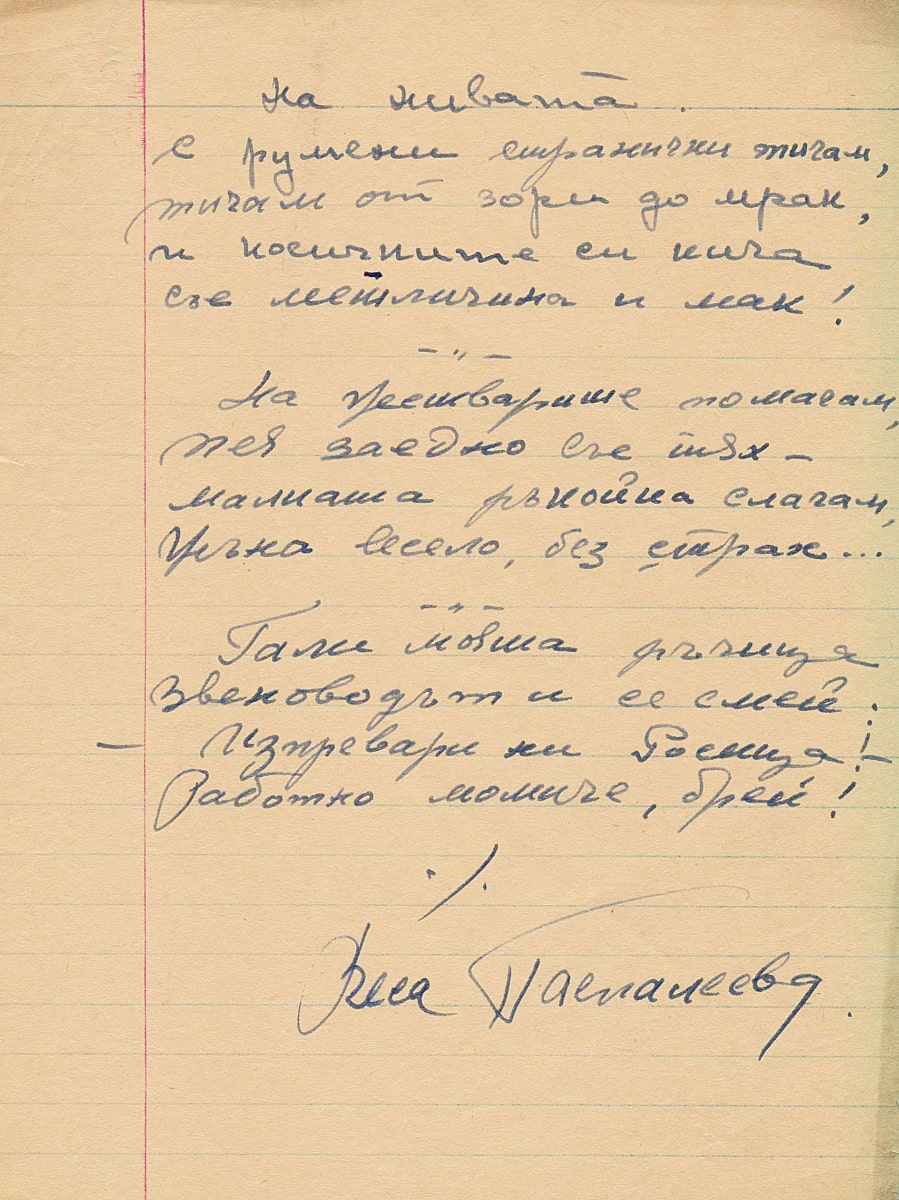 На нивата.
С румени странички тичам,
тичам от зори до мрак,
и косичките си кича
със метличина и мак!
– „ –
На жетварите помагам,
пея заедно със тях –
малката ръкойка слагам,
жъна весело, без страх...
– „ –
Гали мойта ръчица
Звеноводът и се смей:
– Изпревари ни Росица! –
Работно момиче, брей!
./.
Веса Паспалеева.